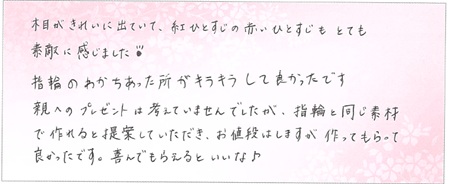 木目がきれいに出ていて、紅ひとすじの赤いひとすじもとても
素敵に感じました!
指輪のわかちあった所がキラキラして良かったです
親へのプレゼントは考えていませんでしたが、指輪と同じ素材
で作れると提案していただき、お値段はしますが作ってもらって
良かったです。喜んでもらえるといいな♪